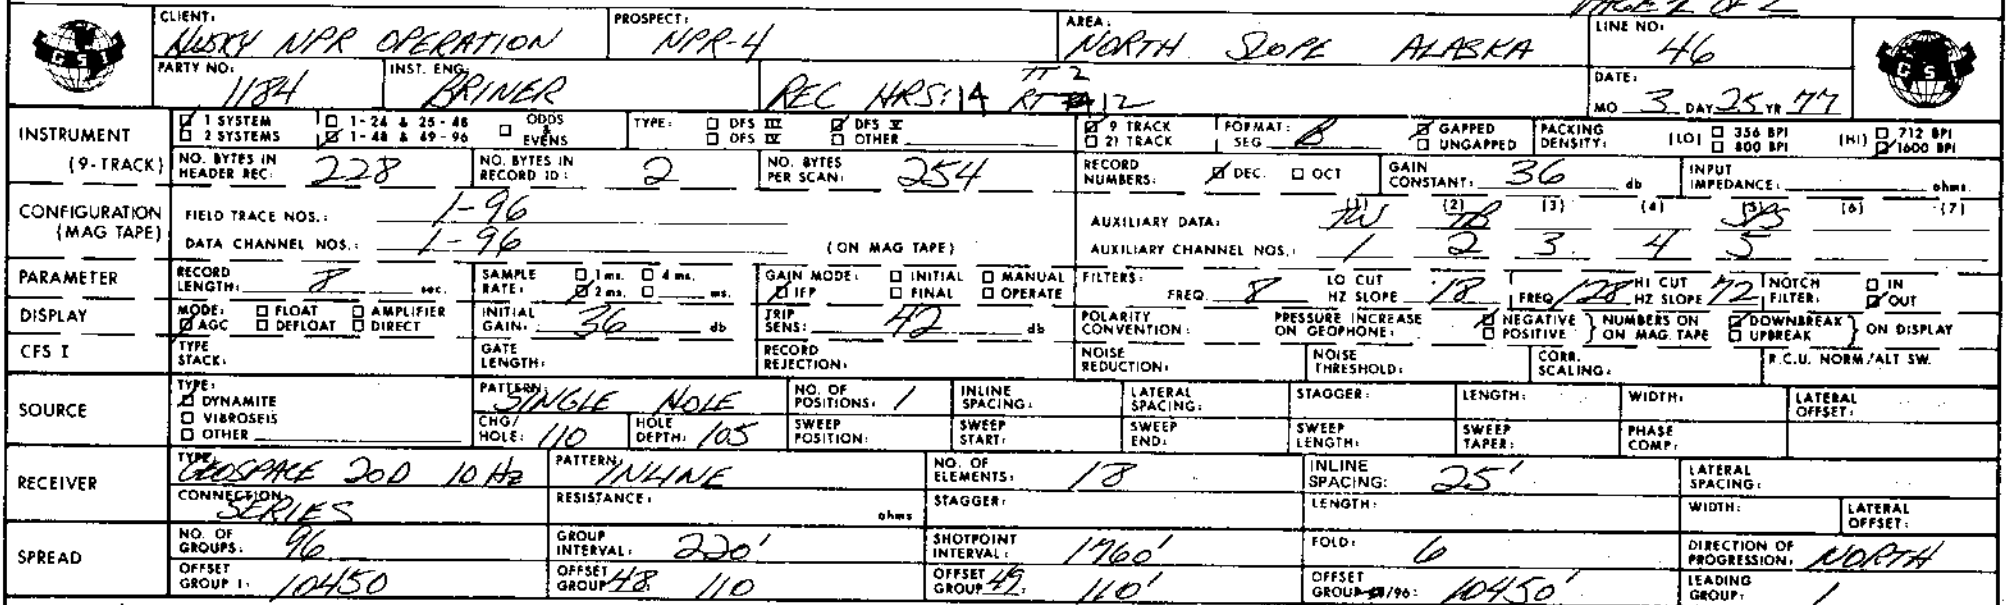 PAGE 2 OF 2
CLIENT: HUSKY NPR OPERATION PROSPECT: NPR-4 AREA: NORTH SLOPE ALASKA LINE NO: 46
GSI
PARTY NO: 1184 INST. ENG: BRINER REC HRS: 14 TT 2 RT 12 DATE: MO 3 DAY 25 YR 77
GSI
INSTRUMENT (9-TRACK) 1 SYSTEM 1-24 & 25-48 ODDS & EVENS TYPE: DFS III DFS V 9 TRACK FORMAT: SEG B GAPPED PACKING DENSITY: (LO) 356 BPI (HI) 712 BPI
2 SYSTEMS 1-48 & 49-96 DFS IV OTHER 21 TRACK UNGAPPED 800 BPI 1600 BPI
NO. BYTES IN HEADER REC: 228 NO. BYTES IN RECORD ID: 2 NO. BYTES PER SCAN: 254 RECORD NUMBERS: DEC. OCT GAIN CONSTANT: 36 db INPUT IMPEDANCE: ohms
CONFIGURATION (MAG TAPE) FIELD TRACE NOS.: 1-96 AUXILIARY DATA: (1) TW (2) TB (3) (4) (5) (6) (7)
DATA CHANNEL NOS.: 1-96 (ON MAG TAPE) AUXILIARY CHANNEL NOS.: 1 2 3 4 5
PARAMETER RECORD LENGTH: 8 sec. SAMPLE RATE: 1 ms. 4 ms. 2 ms. ms. GAIN MODE: INITIAL MANUAL IFP FINAL OPERATE FILTERS: FREQ. 8 LO CUT HZ SLOPE 18 FREQ 128 HI CUT HZ SLOPE 72 NOTCH FILTER: IN OUT
DISPLAY MODE: FLOAT AMPLIFIER AGC DEFLOAT DIRECT INITIAL GAIN: 36 db TRIP SENS: 42 db POLARITY CONVENTION: PRESSURE INCREASE ON GEOPHONE: NEGATIVE POSITIVE } NUMBERS ON ON MAG. TAPE DOWNBREAK UPBREAK } ON DISPLAY
CFS I TYPE STACK: GATE LENGTH: RECORD REJECTION: NOISE REDUCTION: NOISE THRESHOLD: CORR. SCALING: R.C.U. NORM/ALT SW.
SOURCE TYPE: DYNAMITE VIBROSEIS OTHER PATTERN: SINGLE HOLE NO. OF POSITIONS: 1 INLINE SPACING: LATERAL SPACING: STAGGER: LENGTH: WIDTH: LATERAL OFFSET:
CHG/HOLE: 110 HOLE DEPTH: 105 SWEEP POSITION: SWEEP START: SWEEP END: SWEEP LENGTH: SWEEP TAPER: PHASE COMP:
RECEIVER TYPE: GEOSPACE 20D 10 Hz PATTERN: INLINE NO. OF ELEMENTS: 18 INLINE SPACING: 25' LATERAL SPACING:
CONNECTION: SERIES RESISTANCE: ohms STAGGER: LENGTH: WIDTH: LATERAL OFFSET:
SPREAD NO. OF GROUPS: 96 GROUP INTERVAL: 220' SHOTPOINT INTERVAL: 1760' FOLD: 6 DIRECTION OF PROGRESSION: NORTH
OFFSET GROUP 1: 10450 OFFSET GROUP 48: 110 OFFSET GROUP 49: 110' OFFSET GROUP /96: 10450' LEADING GROUP: 1